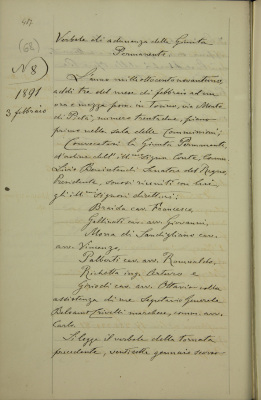 (68)
N 8
1891
3 febbraio
Verbale di adunanza della Giunta
Permanente.
L'anno milleottocentonovantuno
addì tre del mese di febbraio ad un
ora e mezza pom. in Torino, via Monte
di Pietà, numero trentadue, piano
primo nella sala delle Commissioni;
Convocatasi la Giunta Permanente
d'ordine dell' Ill.mo Signor Conte, Comm.
Livio Benintendi Senatore del Regno,
Presidente, sonosi riuniti con lui
gli Ill.mi Signori direttori;
Braida cav. Francesco,
Galtinati cav. avv. Giovanni,
Morra di Sandigliano cav.
avv. Vincenzo,
Palberti cav. avv. Romualdo,
Richetta ing. Arturo e
cav. avv. Ottavio colla
assistenza di me Segretario Generale
Balsamo Crivelli marchese, comm. avv.
Carlo
Si legge il verbale della tornata
precedente, ventisette gennaio scorso